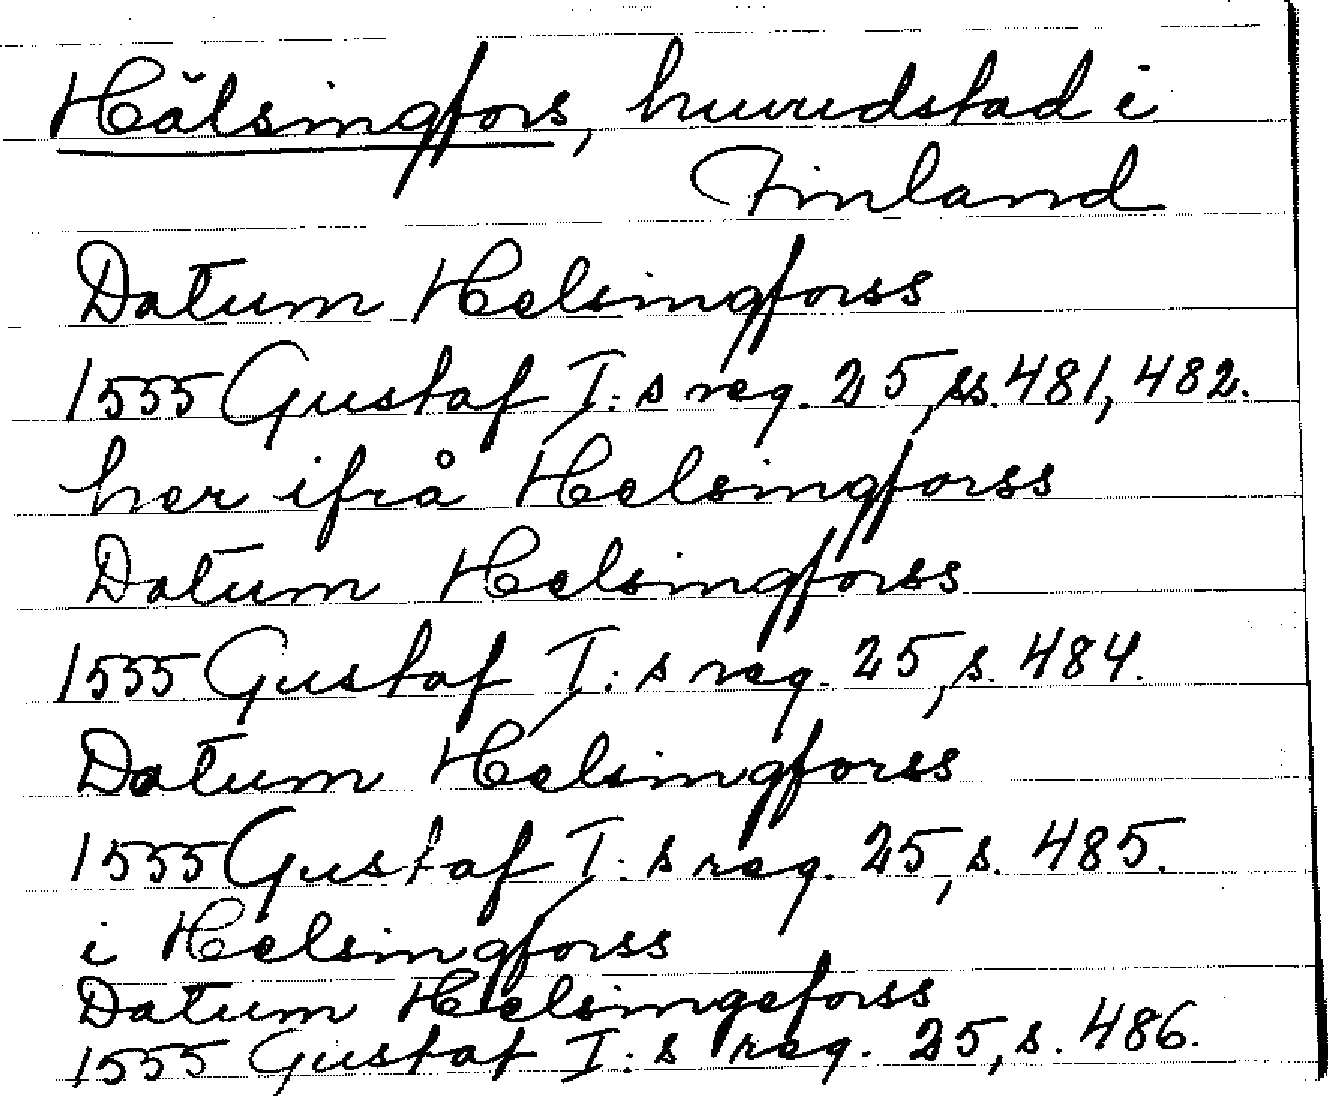 Hälsingfors, huvudstad i
Finland
Datum Helsingforss
1555 Gustaf I:s reg. 25, ss. 481, 482.
her ifrå Helsingforss
Datum Helsingforss
1555 Gustaf I:s reg. 25, s. 484.
Datum Helsingforss
1555 Gustaf I:s reg. 25, s. 485.
i Helsingforss
Datum Helsingeforss
1555 Gustaf I:s reg. 25, s. 486.